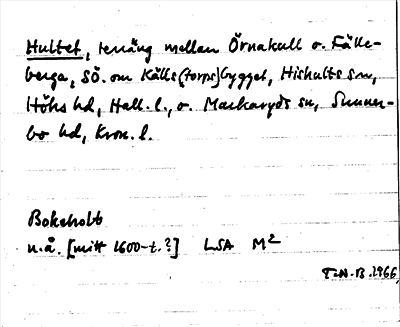 Hultet, terräng mellan Örnakull o. Fälle-
berga, SÖ. om Källs(torps)bygget, Hishults sn,
Höks hd, Hall. l., o. Markaryds sn, Sunner-
bo hd, Kron. l.
Bokeholt
u.å. [mitt 1600-t.?] LSA M²
T.N.B. 1966